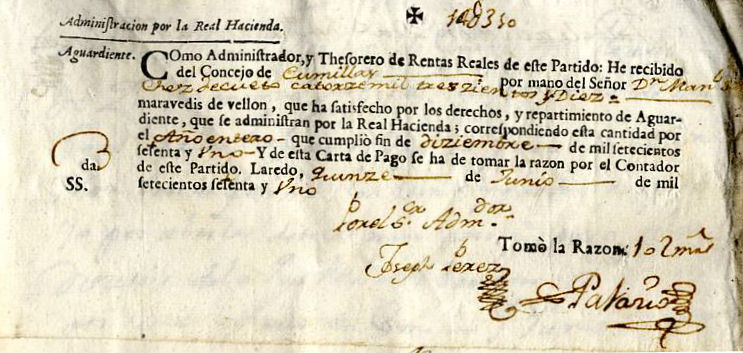 Administracion por la Real Hacienda. ✠ 14ɸ310
Aguardiente. COmo Administrador, y Thesorero de Rentas Reales de este Partido: He recibido
del Concejo de Cumillas por mano del Señor Dn. Manl.
Diez de cueto catorze mil tres zientos y Diez
maravedis de vellon, que ha satisfecho por los derechos, y repartimiento de Aguar-
diente, que se administran por la Real Hacienda; correspondiendo esta cantidad por
el Año entero que cumpliò fin de diziembre de mil setecientos
sesenta y Vno Y de esta Carta de Pago se ha de tomar la razon por el Contador
da de este Partido. Laredo, quinze de Junio de mil
SS. setecientos sesenta y Vno
Por el Sor. Admdor.
Tomè la Razon.
Joseph Perez
Palacio